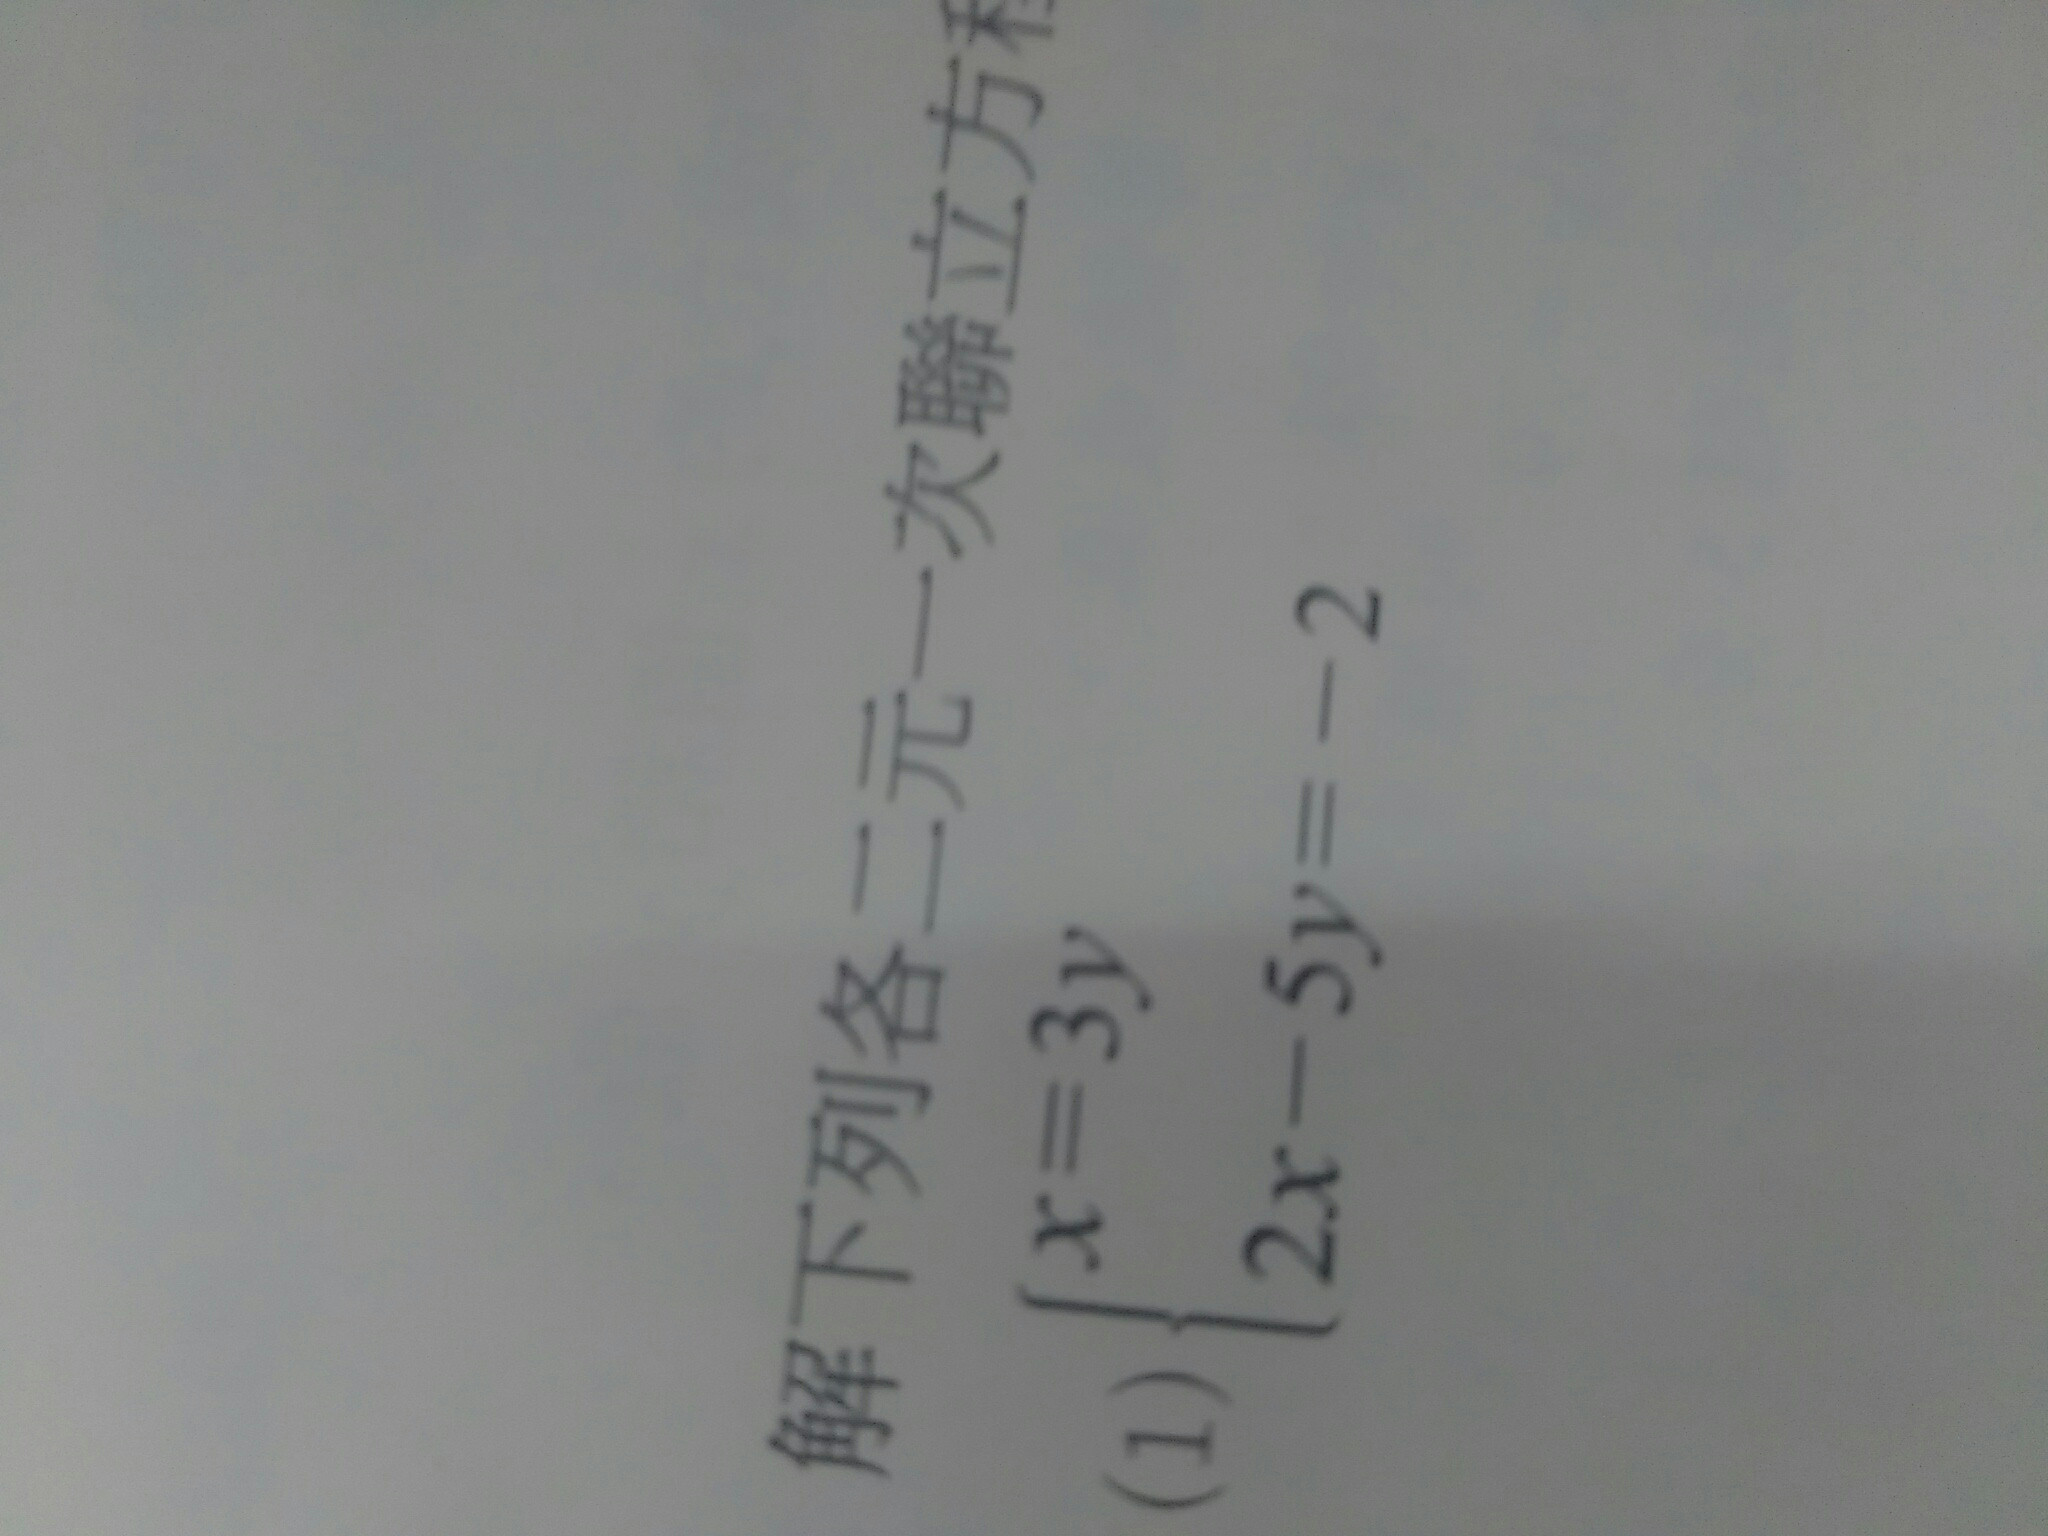 解下列各二元一次聯立方程
(1) { x=3y
2x-5y=-2